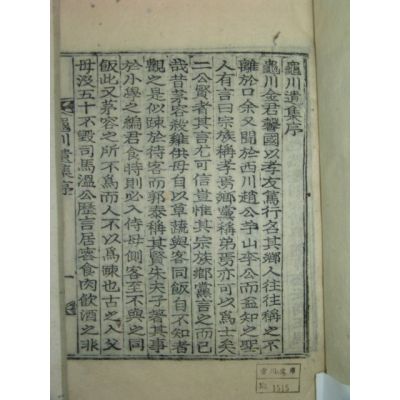 龜川遺集序
龜川金君馨國以孝友篤行名其鄕人往往稱之不
離於口余又聞於西川趙公茅山李公而益知之聖
人有言曰宗族稱孝焉鄕黨稱弟焉亦可以爲士矣
二公賢者其言尤可信豈惟其宗族鄕黨言之而已
哉昔茅容殺雞供母自以草蔬與客同飯自不知者
觀之是似疎於待客而郭泰稱其賢朱夫子著其事
於小學之編君食時則必入侍母側客至不與同
飯此又茅容之所不爲而人不以爲疎也古之人父
母沒五十不毁司馬溫公歷言居喪食肉飮酒之非
龜川遺集序
1515